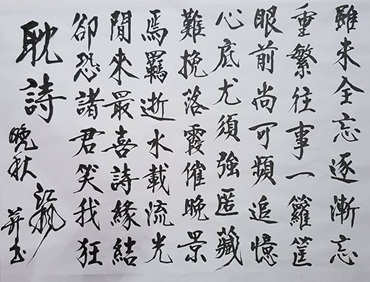 雖未全忘逐漸忘
重繁往事一籮筐
眼前尚可頻追憶
心底尤須強匿藏
難挽落霞催晚景
焉羈逝水載流光
閒來最喜詩緣結
卻恐諸君笑我狂
耽詩
晚秋 并书